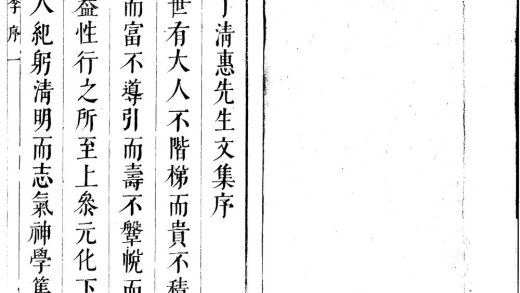 清惠先生文集序
世有大人不階梯而貴不積
而富不導引而壽不鞶帨而
益性行之所至上叅元化下
人紀躬清明而志氣神學篤
李序一